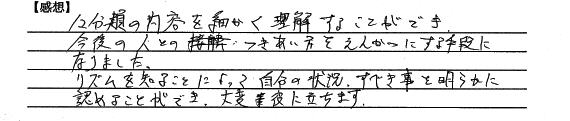 【感想】
12分類の内容を細かく理解することができ
今後の人との接解・つきあい方をえんかつにする手段に
なりました。
リズムを知ることによって自分の状況、すべき事を明らかに
認めることができ、大変役に立ちます。